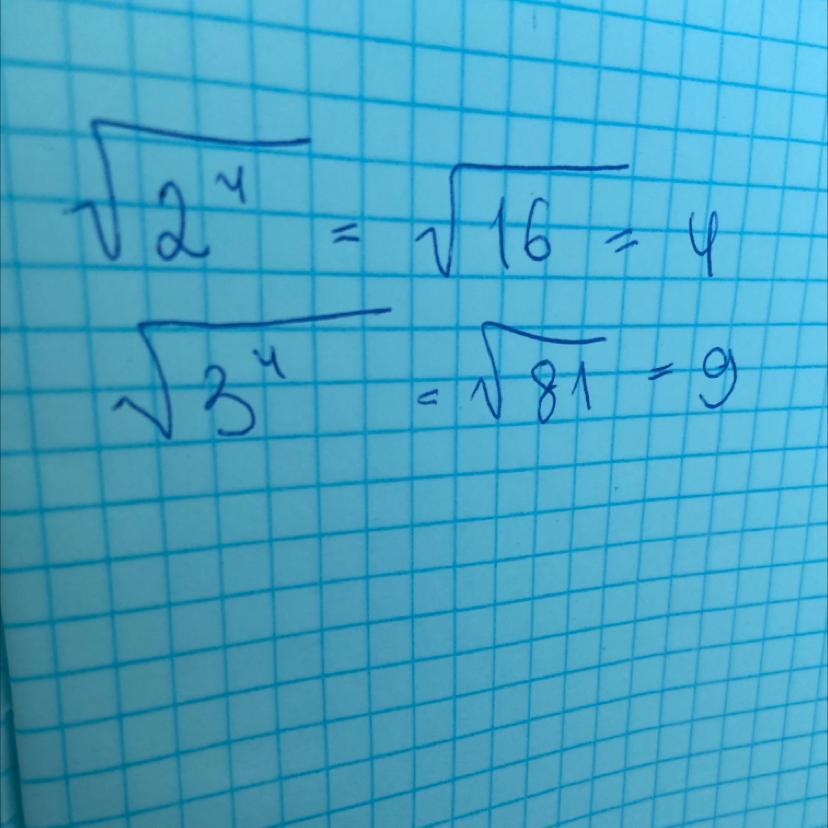 √2⁴ = √16 = 4
√3⁴ = √81 = 9